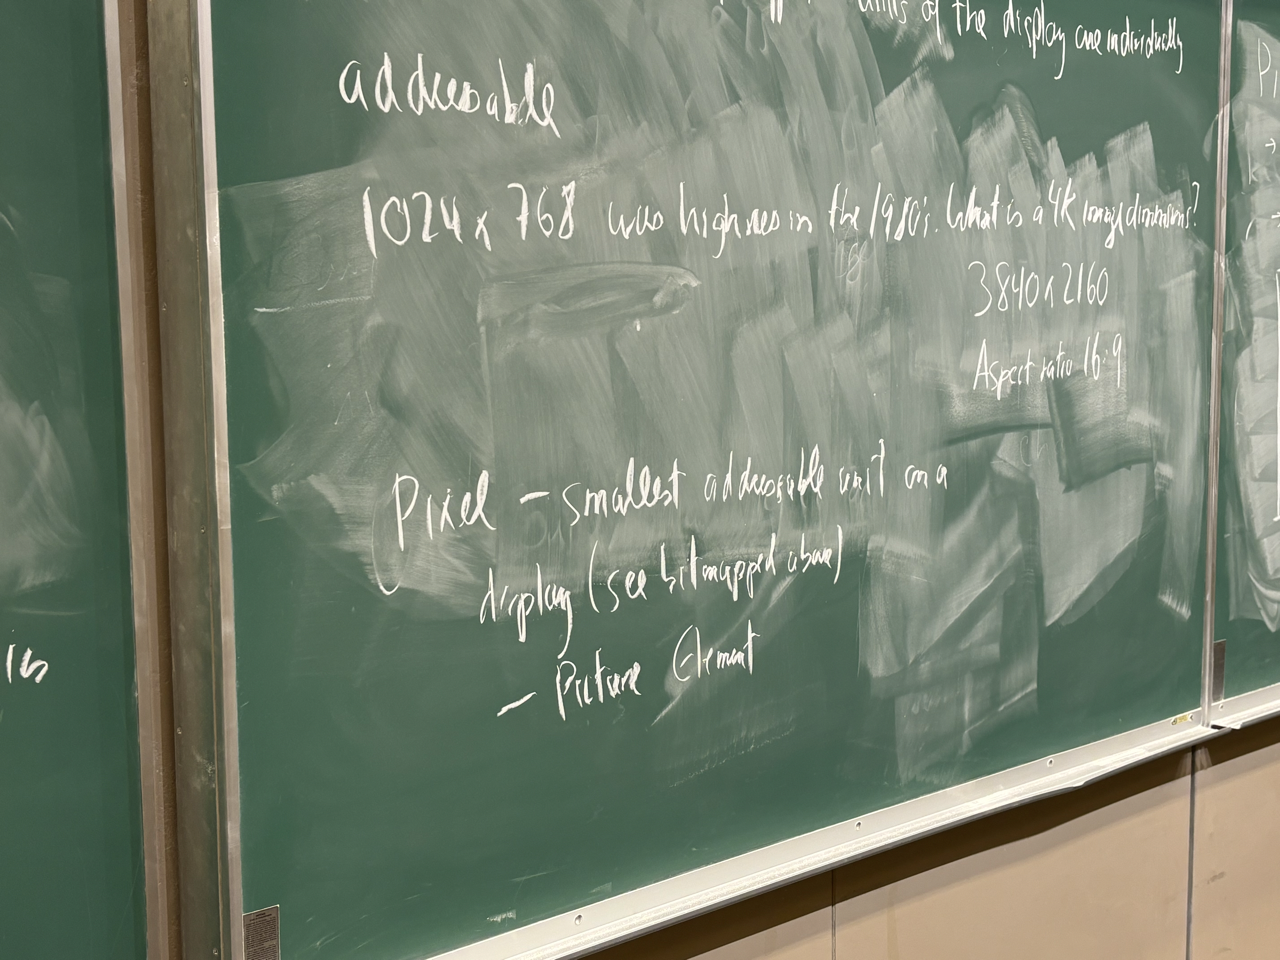 of the display are individually
addressable
1024 x 768 was highres in the 1980's. What is a 4K image dimensions?
3840 x 2160
Aspect ratio 16:9
Pixel - smallest addressable unit on a
display (see bitmapped above)
- Picture Element